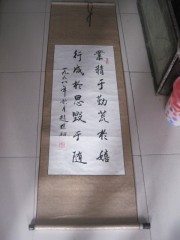 業精于勤荒於嬉
行成於思毀于隨
一九八